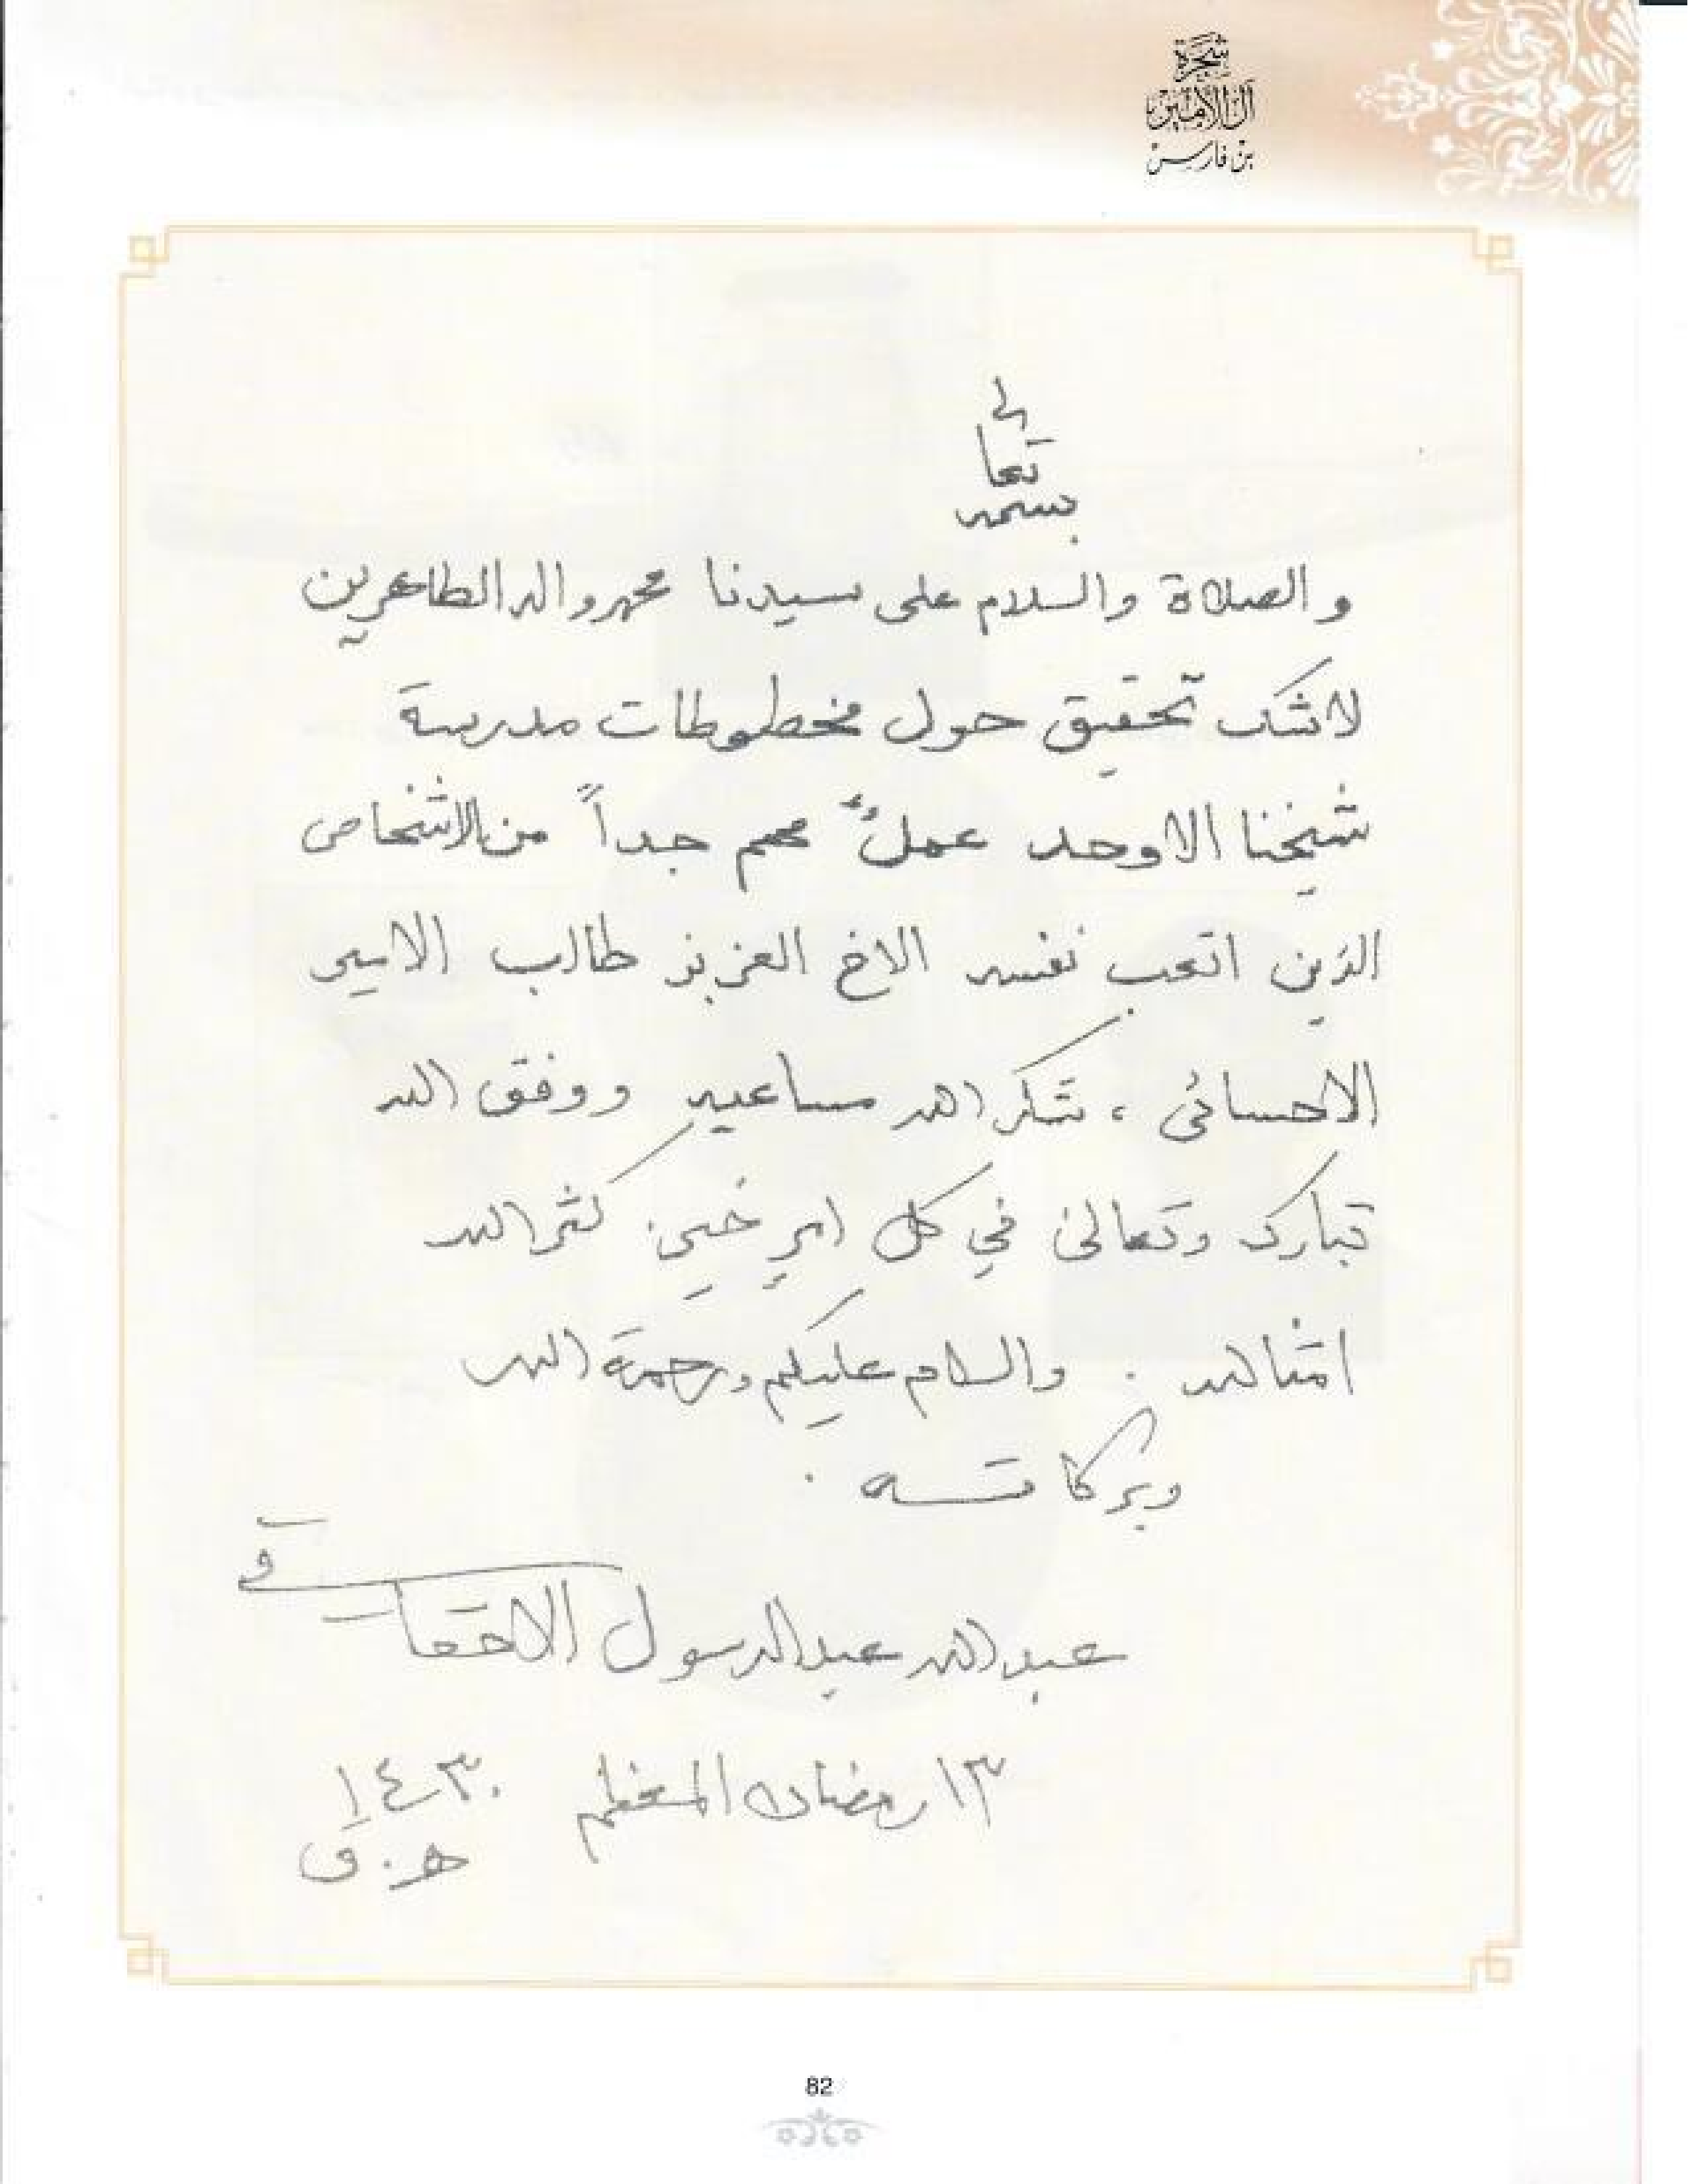 شجرة
آل الأمير
بن فارس
بسمه تعالى
والصلاة والسلام على سيدنا محمد واله الطاهرين
لا شك تحقيق حول مخطوطات مدرسة
شيخنا الاوحد عملٌ مهم جداً من الاشخاص
الذين اتعب نفسه الاخ العزيز طالب الامير
الاحسائي ، شكر الله مساعيه ووفق الله
تبارك وتعالى في كل امرٍ خيرٍ . كثر الله
امثاله . والسلام عليكم ورحمة الله
وبركاته .
عبدالله عبدالرسول الاحقاقي
١٣ رمضان المعظم ١٤٣٠
هـ . ق
82